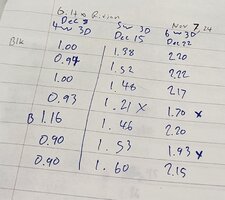 Nov 7, 24
4w 3D 5w 3D 6w 3D
Dec 8 Dec 15 Dec 22
Blk 1.00 1.38 2.20
0.94 1.52 2.22
1.00 1.48 2.17
0.93 1.21 x 1.70 x
B 1.16 1.46 2.20
0.90 1.53 1.93 x
0.90 1.60 2.15